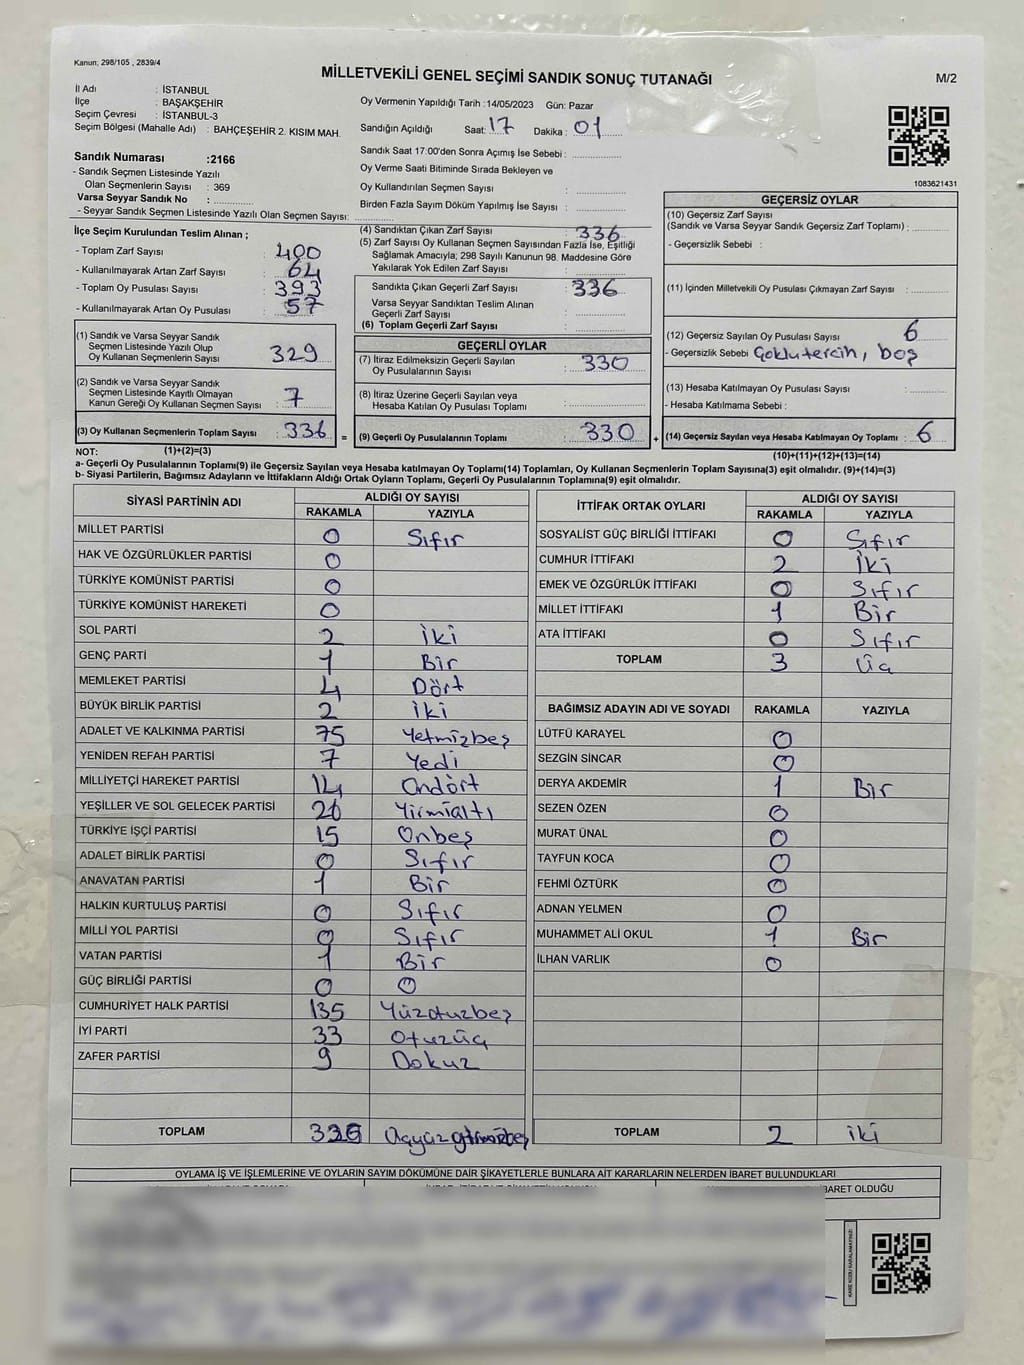 Kanun, 298/105 , 2839/4
MİLLETVEKİLİ GENEL SEÇİMİ SANDIK SONUÇ TUTANAĞI
M/2
İl Adı : İSTANBUL
İlçe : BAŞAKŞEHİR
Seçim Çevresi : İSTANBUL-3
Seçim Bölgesi (Mahalle Adı) : BAHÇEŞEHİR 2. KISIM MAH.
Oy Vermenin Yapıldığı Tarih : 14/05/2023 Gün: Pazar
Sandığın Açıldığı Saat: 17 Dakika : 01
Sandık Saat 17:00'den Sonra Açımış İse Sebebi :
Oy Verme Saati Bitiminde Sırada Bekleyen ve
Oy Kullandırılan Seçmen Sayısı :
Birden Fazla Sayım Döküm Yapılmış İse Sayısı :
1083621431
Sandık Numarası :2166
- Sandık Seçmen Listesinde Yazılı
Olan Seçmenlerin Sayısı : 369
Varsa Seyyar Sandık No :
- Seyyar Sandık Seçmen Listesinde Yazılı Olan Seçmen Sayısı:
İlçe Seçim Kurulundan Teslim Alınan ;
- Toplam Zarf Sayısı : 400
- Kullanılmayarak Artan Zarf Sayısı : 64
- Toplam Oy Pusulası Sayısı : 393
- Kullanılmayarak Artan Oy Pusulası : 57
(1) Sandık ve Varsa Seyyar Sandık
Seçmen Listesinde Yazılı Olup
Oy Kullanan Seçmenlerin Sayısı : 329
(2) Sandık ve Varsa Seyyar Sandık
Seçmen Listesinde Kayıtlı Olmayan
Kanun Gereği Oy Kullanan Seçmen Sayısı : 7
(3) Oy Kullanan Seçmenlerin Toplam Sayısı : 336 =
(4) Sandıktan Çıkan Zarf Sayısı : 336
(5) Zarf Sayısı Oy Kullanan Seçmen Sayısından Fazla İse, Eşitliği
Sağlamak Amacıyla; 298 Sayılı Kanunun 98. Maddesine Göre
Yakılarak Yok Edilen Zarf Sayısı :
Sandıkta Çıkan Geçerli Zarf Sayısı : 336
Varsa Seyyar Sandıktan Teslim Alınan
Geçerli Zarf Sayısı :
(6) Toplam Geçerli Zarf Sayısı :
GEÇERLİ OYLAR
(7) İtiraz Edilmeksizin Geçerli Sayılan
Oy Pusulalarının Sayısı : 330
(8) İtiraz Üzerine Geçerli Sayılan veya
Hesaba Katılan Oy Pusulası Toplamı :
(9) Geçerli Oy Pusulalarının Toplamı : 330 +
GEÇERSİZ OYLAR
(10) Geçersiz Zarf Sayısı
(Sandık ve Varsa Seyyar Sandık Geçersiz Zarf Toplamı) :
- Geçersizlik Sebebi :
(11) İçinden Milletvekili Oy Pusulası Çıkmayan Zarf Sayısı :
(12) Geçersiz Sayılan Oy Pusulası Sayısı : 6
- Geçersizlik Sebebi Çoklu tercih, boş
(13) Hesaba Katılmayan Oy Pusulası Sayısı :
- Hesaba Katılmama Sebebi :
(14) Geçersiz Sayılan veya Hesaba Katılmayan Oy Toplamı : 6
NOT: (1)+(2)=(3)
(10)+(11)+(12)+(13)=(14)
a- Geçerli Oy Pusulalarının Toplamı(9) ile Geçersiz Sayılan veya Hesaba katılmayan Oy Toplamı(14) Toplamları, Oy Kullanan Seçmenlerin Toplam Sayısına(3) eşit olmalıdır. (9)+(14)=(3)
b- Siyasi Partilerin, Bağımsız Adayların ve İttifakların Aldığı Ortak Oyların Toplamı, Geçerli Oy Pusulalarının Toplamına(9) eşit olmalıdır.
SİYASİ PARTİNİN ADI ALDIĞI OY SAYISI
RAKAMLA YAZIYLA
MİLLET PARTİSİ 0 Sıfır
HAK VE ÖZGÜRLÜKLER PARTİSİ 0
TÜRKİYE KOMÜNİST PARTİSİ 0
TÜRKİYE KOMÜNİST HAREKETİ 0
SOL PARTİ 2 İki
GENÇ PARTİ 1 Bir
MEMLEKET PARTİSİ 4 Dört
BÜYÜK BİRLİK PARTİSİ 2 İki
ADALET VE KALKINMA PARTİSİ 75 Yetmişbeş
YENİDEN REFAH PARTİSİ 7 Yedi
MİLLİYETÇİ HAREKET PARTİSİ 14 Ondört
YEŞİLLER VE SOL GELECEK PARTİSİ 26 Yirmialtı
TÜRKİYE İŞÇİ PARTİSİ 15 Onbeş
ADALET BİRLİK PARTİSİ 0 Sıfır
ANAVATAN PARTİSİ 1 Bir
HALKIN KURTULUŞ PARTİSİ 0 Sıfır
MİLLİ YOL PARTİSİ 0 Sıfır
VATAN PARTİSİ 1 Bir
GÜÇ BİRLİĞİ PARTİSİ 0 0
CUMHURİYET HALK PARTİSİ 135 Yüzotuzbeş
İYİ PARTİ 33 Otuzüç
ZAFER PARTİSİ 9 Dokuz
TOPLAM
İTTİFAK ORTAK OYLARI ALDIĞI OY SAYISI
RAKAMLA YAZIYLA
SOSYALİST GÜÇ BİRLİĞİ İTTİFAKI 0 Sıfır
CUMHUR İTTİFAKI 2 İki
EMEK VE ÖZGÜRLÜK İTTİFAKI 0 Sıfır
MİLLET İTTİFAKI 1 Bir
ATA İTTİFAKI 0 Sıfır
TOPLAM 3 Üç
BAĞIMSIZ ADAYIN ADI VE SOYADI RAKAMLA YAZIYLA
LÜTFÜ KARAYEL 0
SEZGİN SİNCAR 0
DERYA AKDEMİR 1 Bir
SEZEN ÖZEN 0
MURAT ÜNAL 0
TAYFUN KOCA 0
FEHMİ ÖZTÜRK 0
ADNAN YELMEN 0
MUHAMMET ALİ OKUL 1 Bir
İLHAN VARLIK 0
TOPLAM 2 iki
OYLAMA İŞ VE İŞLEMLERİNE VE OYLARIN SAYIM DÖKÜMÜNE DAİR ŞİKAYETLERLE BUNLARA AİT KARARLARIN NELERDEN İBARET BULUNDUKLARI
İBARET OLDUĞU